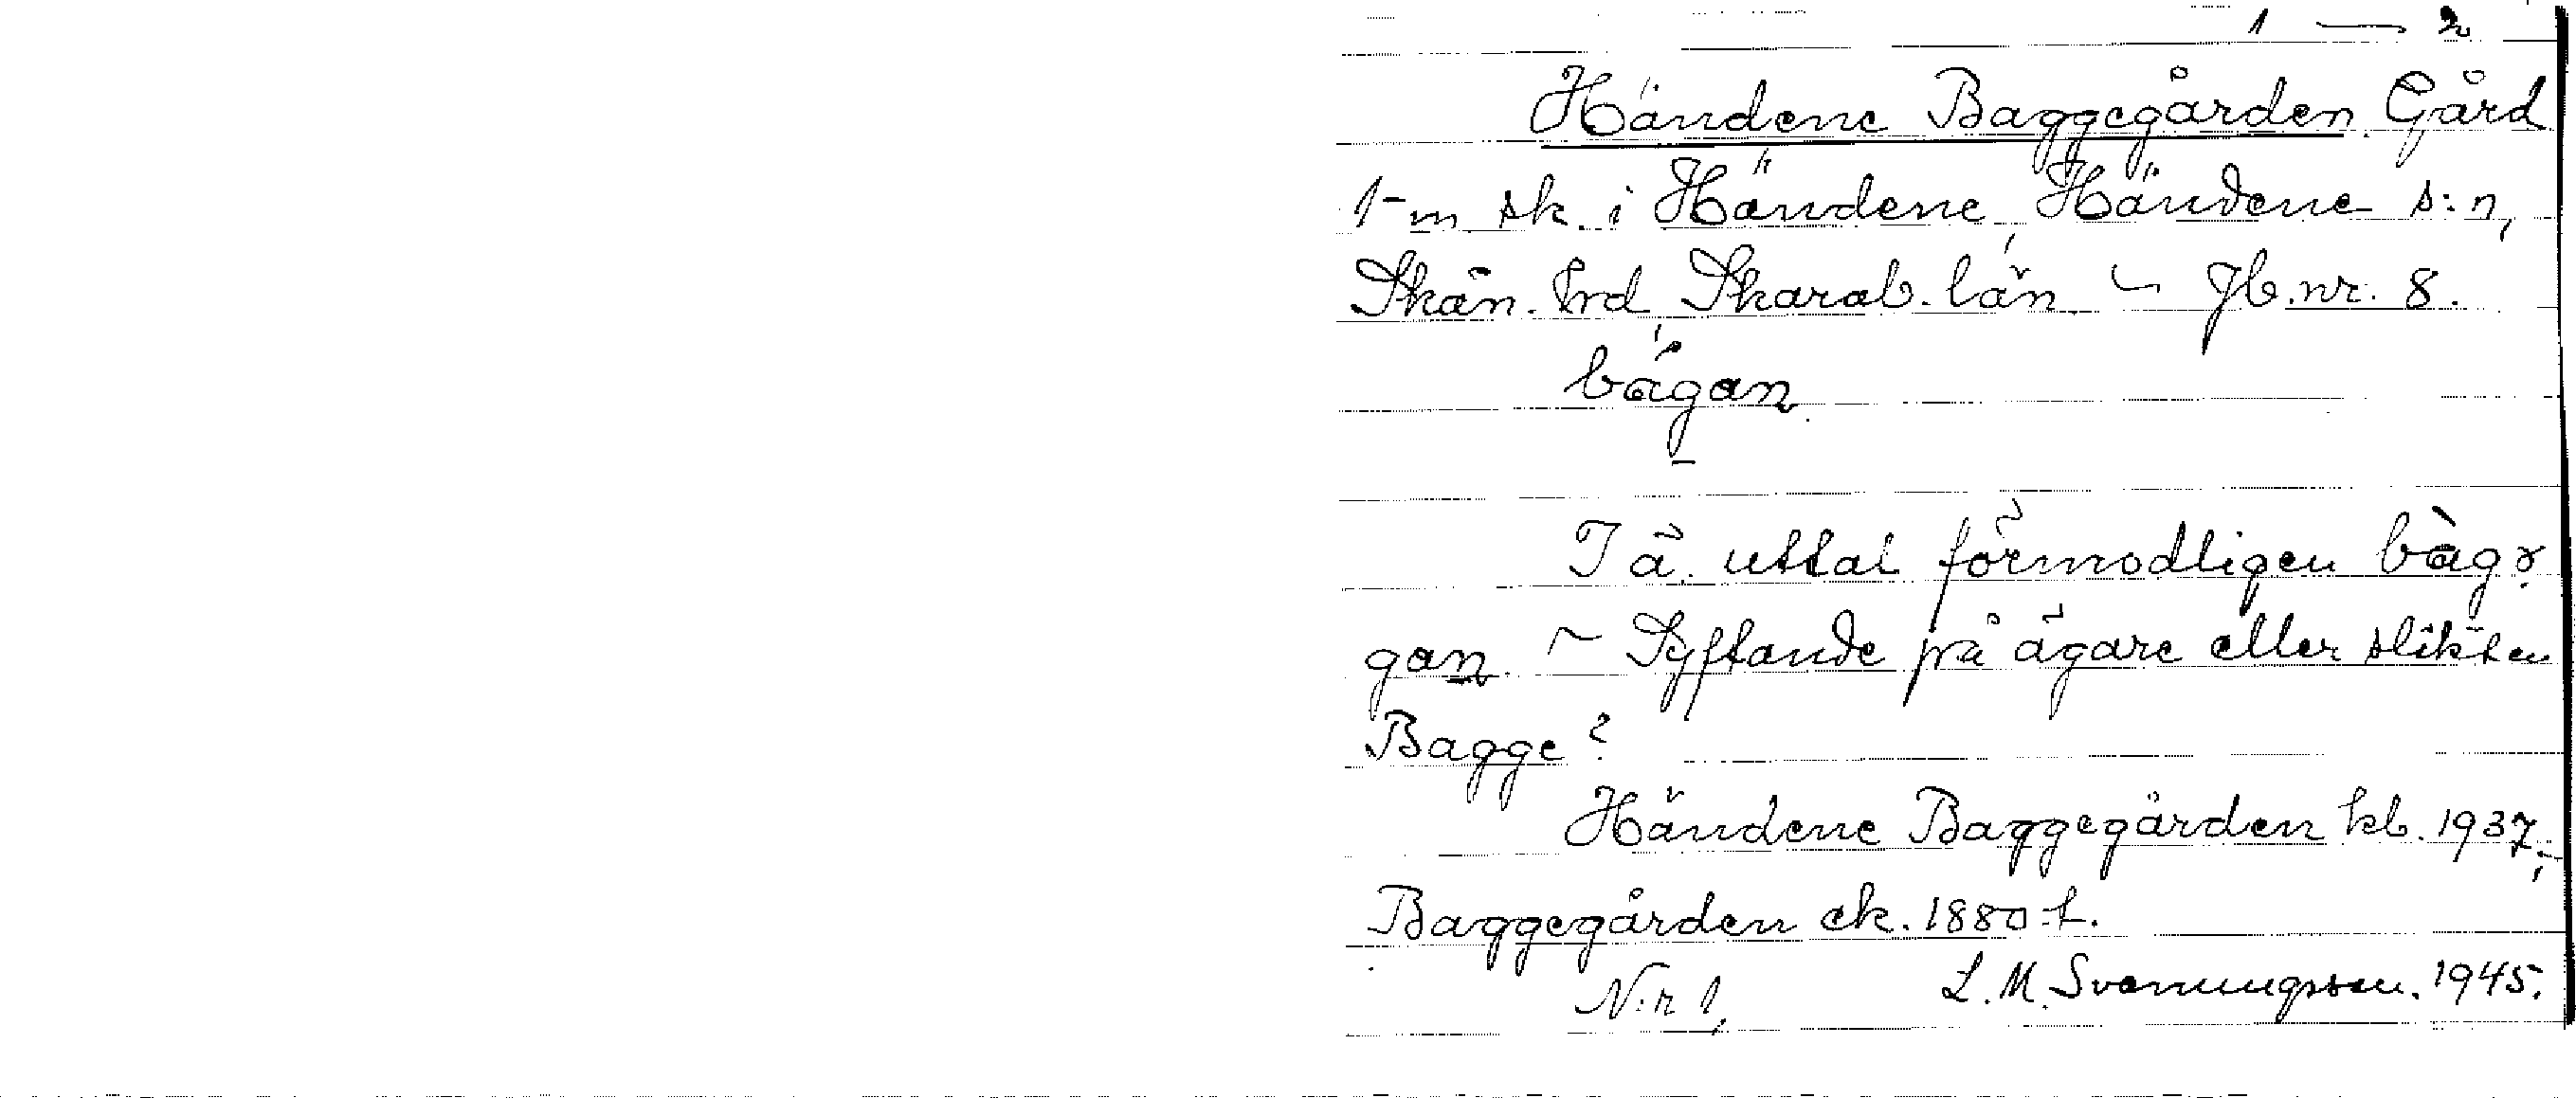 1 — 2
Händene Baggegården Gård
1-m sk. i Händene, Händene s:n,
Skån. hrd, Skarab. län. ~ Jb. nr. 8.
bágan
I ä. uttal förmodligen bàgɤ
gan. ~ Syftande på ägare eller släkten
Bagge?
Händene Baggegården kb. 1937;
Baggegården ek. 1880-t.
N:r 1, L. M. Svenungsson. 1945.